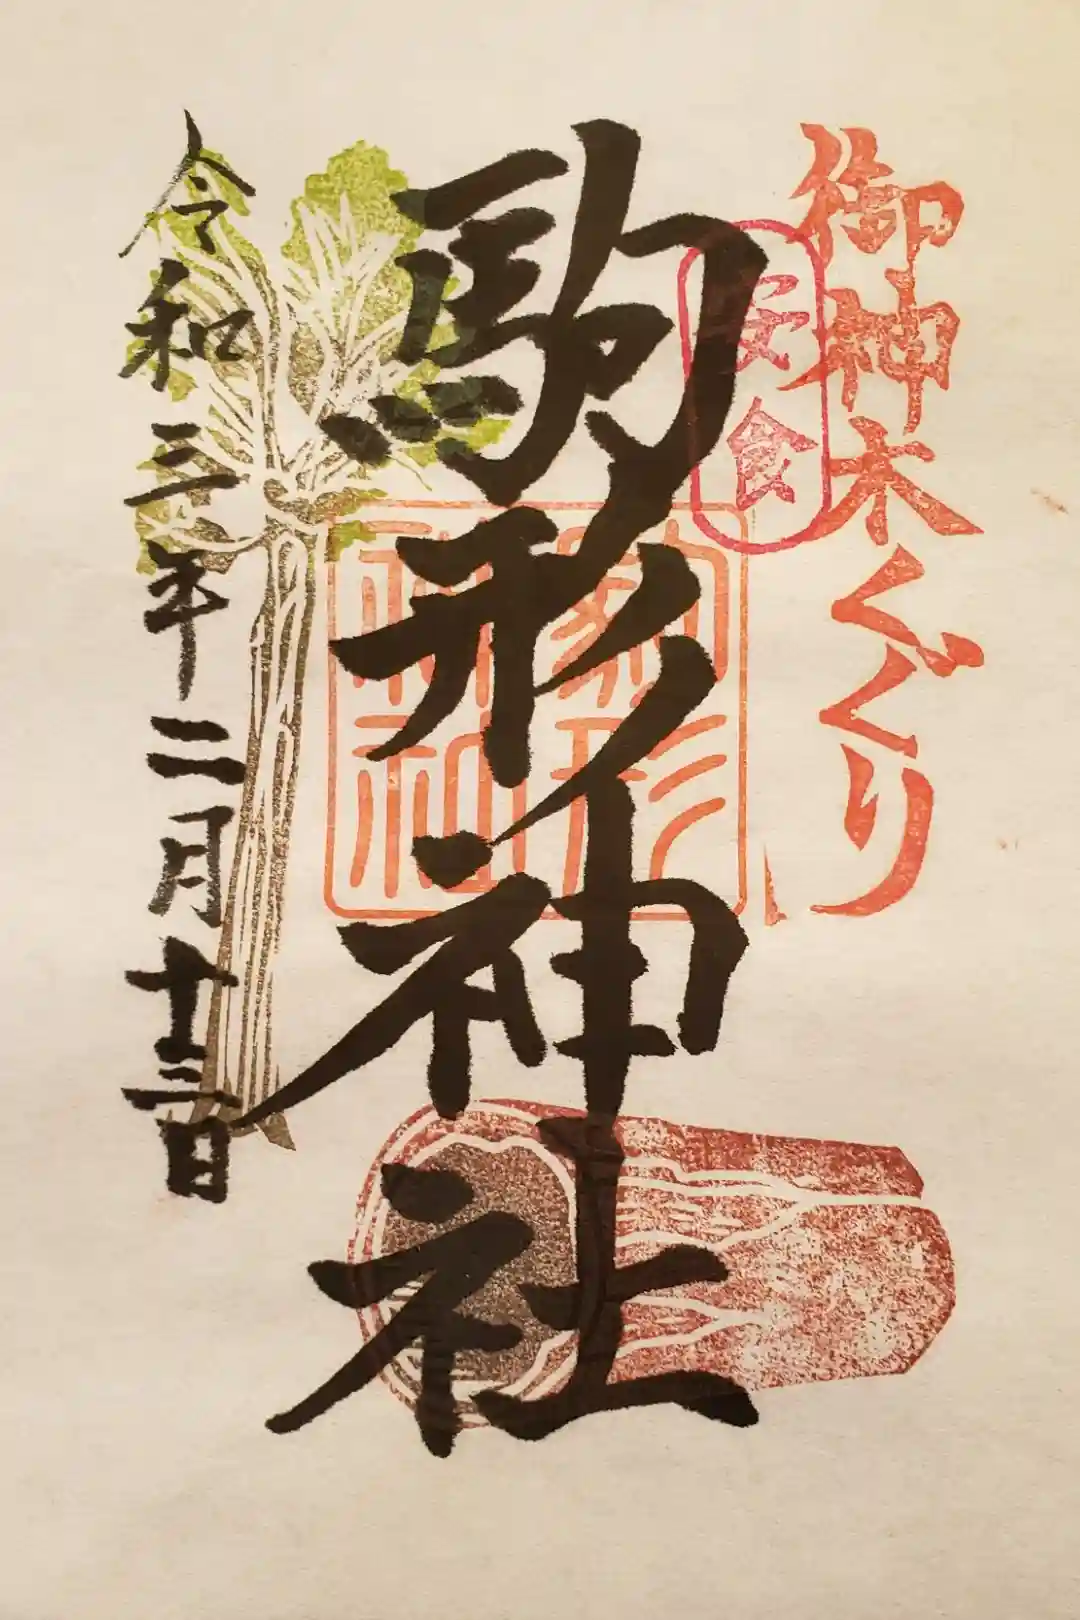 御神木くぐり
安食
駒形神社
駒形
神社
令和三年二月十三日